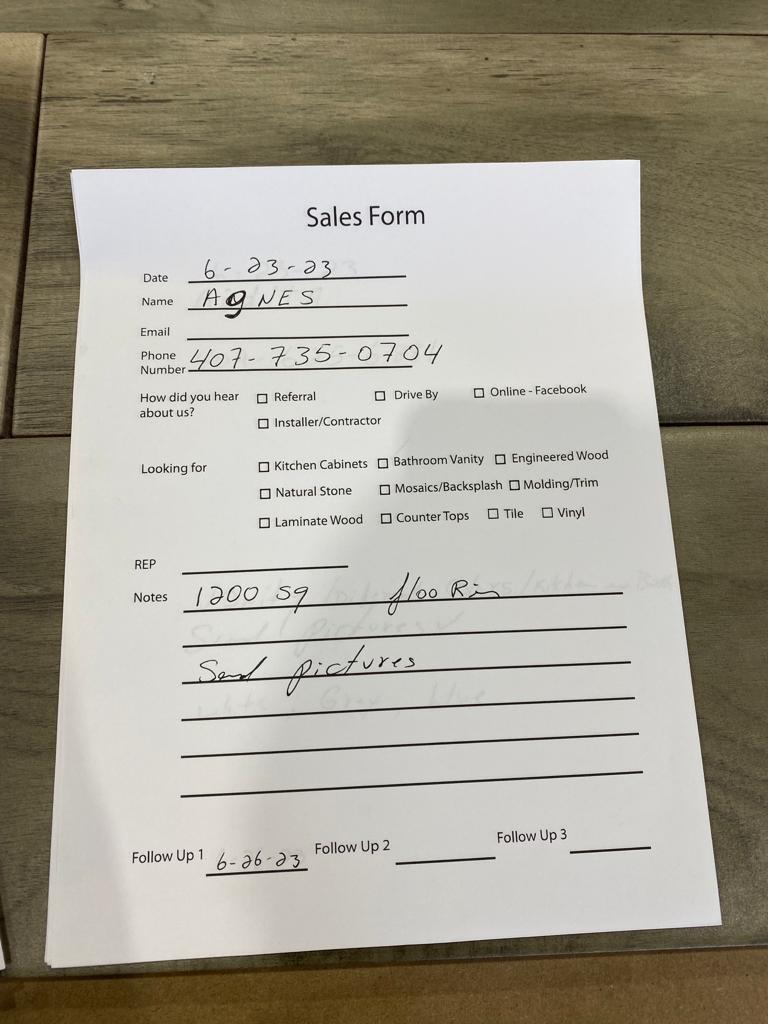 Sales Form
Date 6-23-23
Name AgNES
Email
Phone Number 407-735-0704
How did you hear about us?
☐ Referral ☐ Drive By ☐ Online - Facebook
☐ Installer/Contractor
Looking for
☐ Kitchen Cabinets ☐ Bathroom Vanity ☐ Engineered Wood
☐ Natural Stone ☐ Mosaics/Backsplash ☐ Molding/Trim
☐ Laminate Wood ☐ Counter Tops ☐ Tile ☐ Vinyl
REP
Notes 1200 sq flooRin
Send pictures
Follow Up 1 6-26-23 Follow Up 2 Follow Up 3